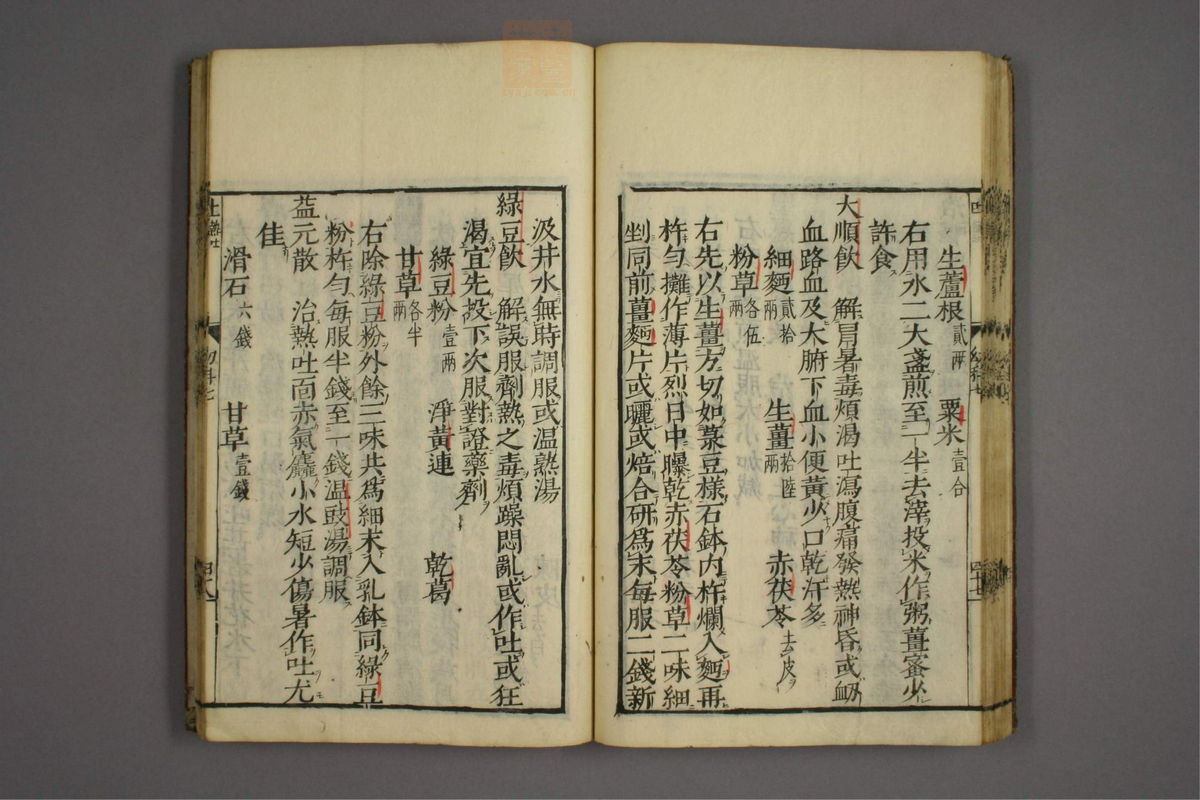 生蘆根貳兩　粟米壹合
右用水二大盞煎至一半去滓投米作粥薑蜜少
許食
大順飲　解冒暑毒煩渴吐瀉腹痛發熱神昏或衂
血路血及大腑下血小便黃少口乾汗多
細麵貳拾兩　生薑拾陸兩　赤茯苓去皮
粉草各伍兩
右先以生薑方切如菉豆樣石鉢内杵爛入麵再
杵勻攤作薄片烈日中曝乾赤茯苓粉草二味細
剉同前薑麵片或曬或焙合研爲末每服二錢新
汲井水無時調服或温熟湯
綠豆飲　解誤服劑熱之毒煩躁悶亂或作吐或狂
渴宜先投下次服對證藥劑
綠豆粉壹兩　淨黃連　乾葛
甘草各半兩
右除綠豆粉外餘三味共爲細末入乳鉢同綠豆
粉杵勻每服半錢至一錢溫豉湯調服
益元散　治熱吐面赤氣麤小水短少傷暑作吐尤
佳
滑石六錢　甘草壹錢